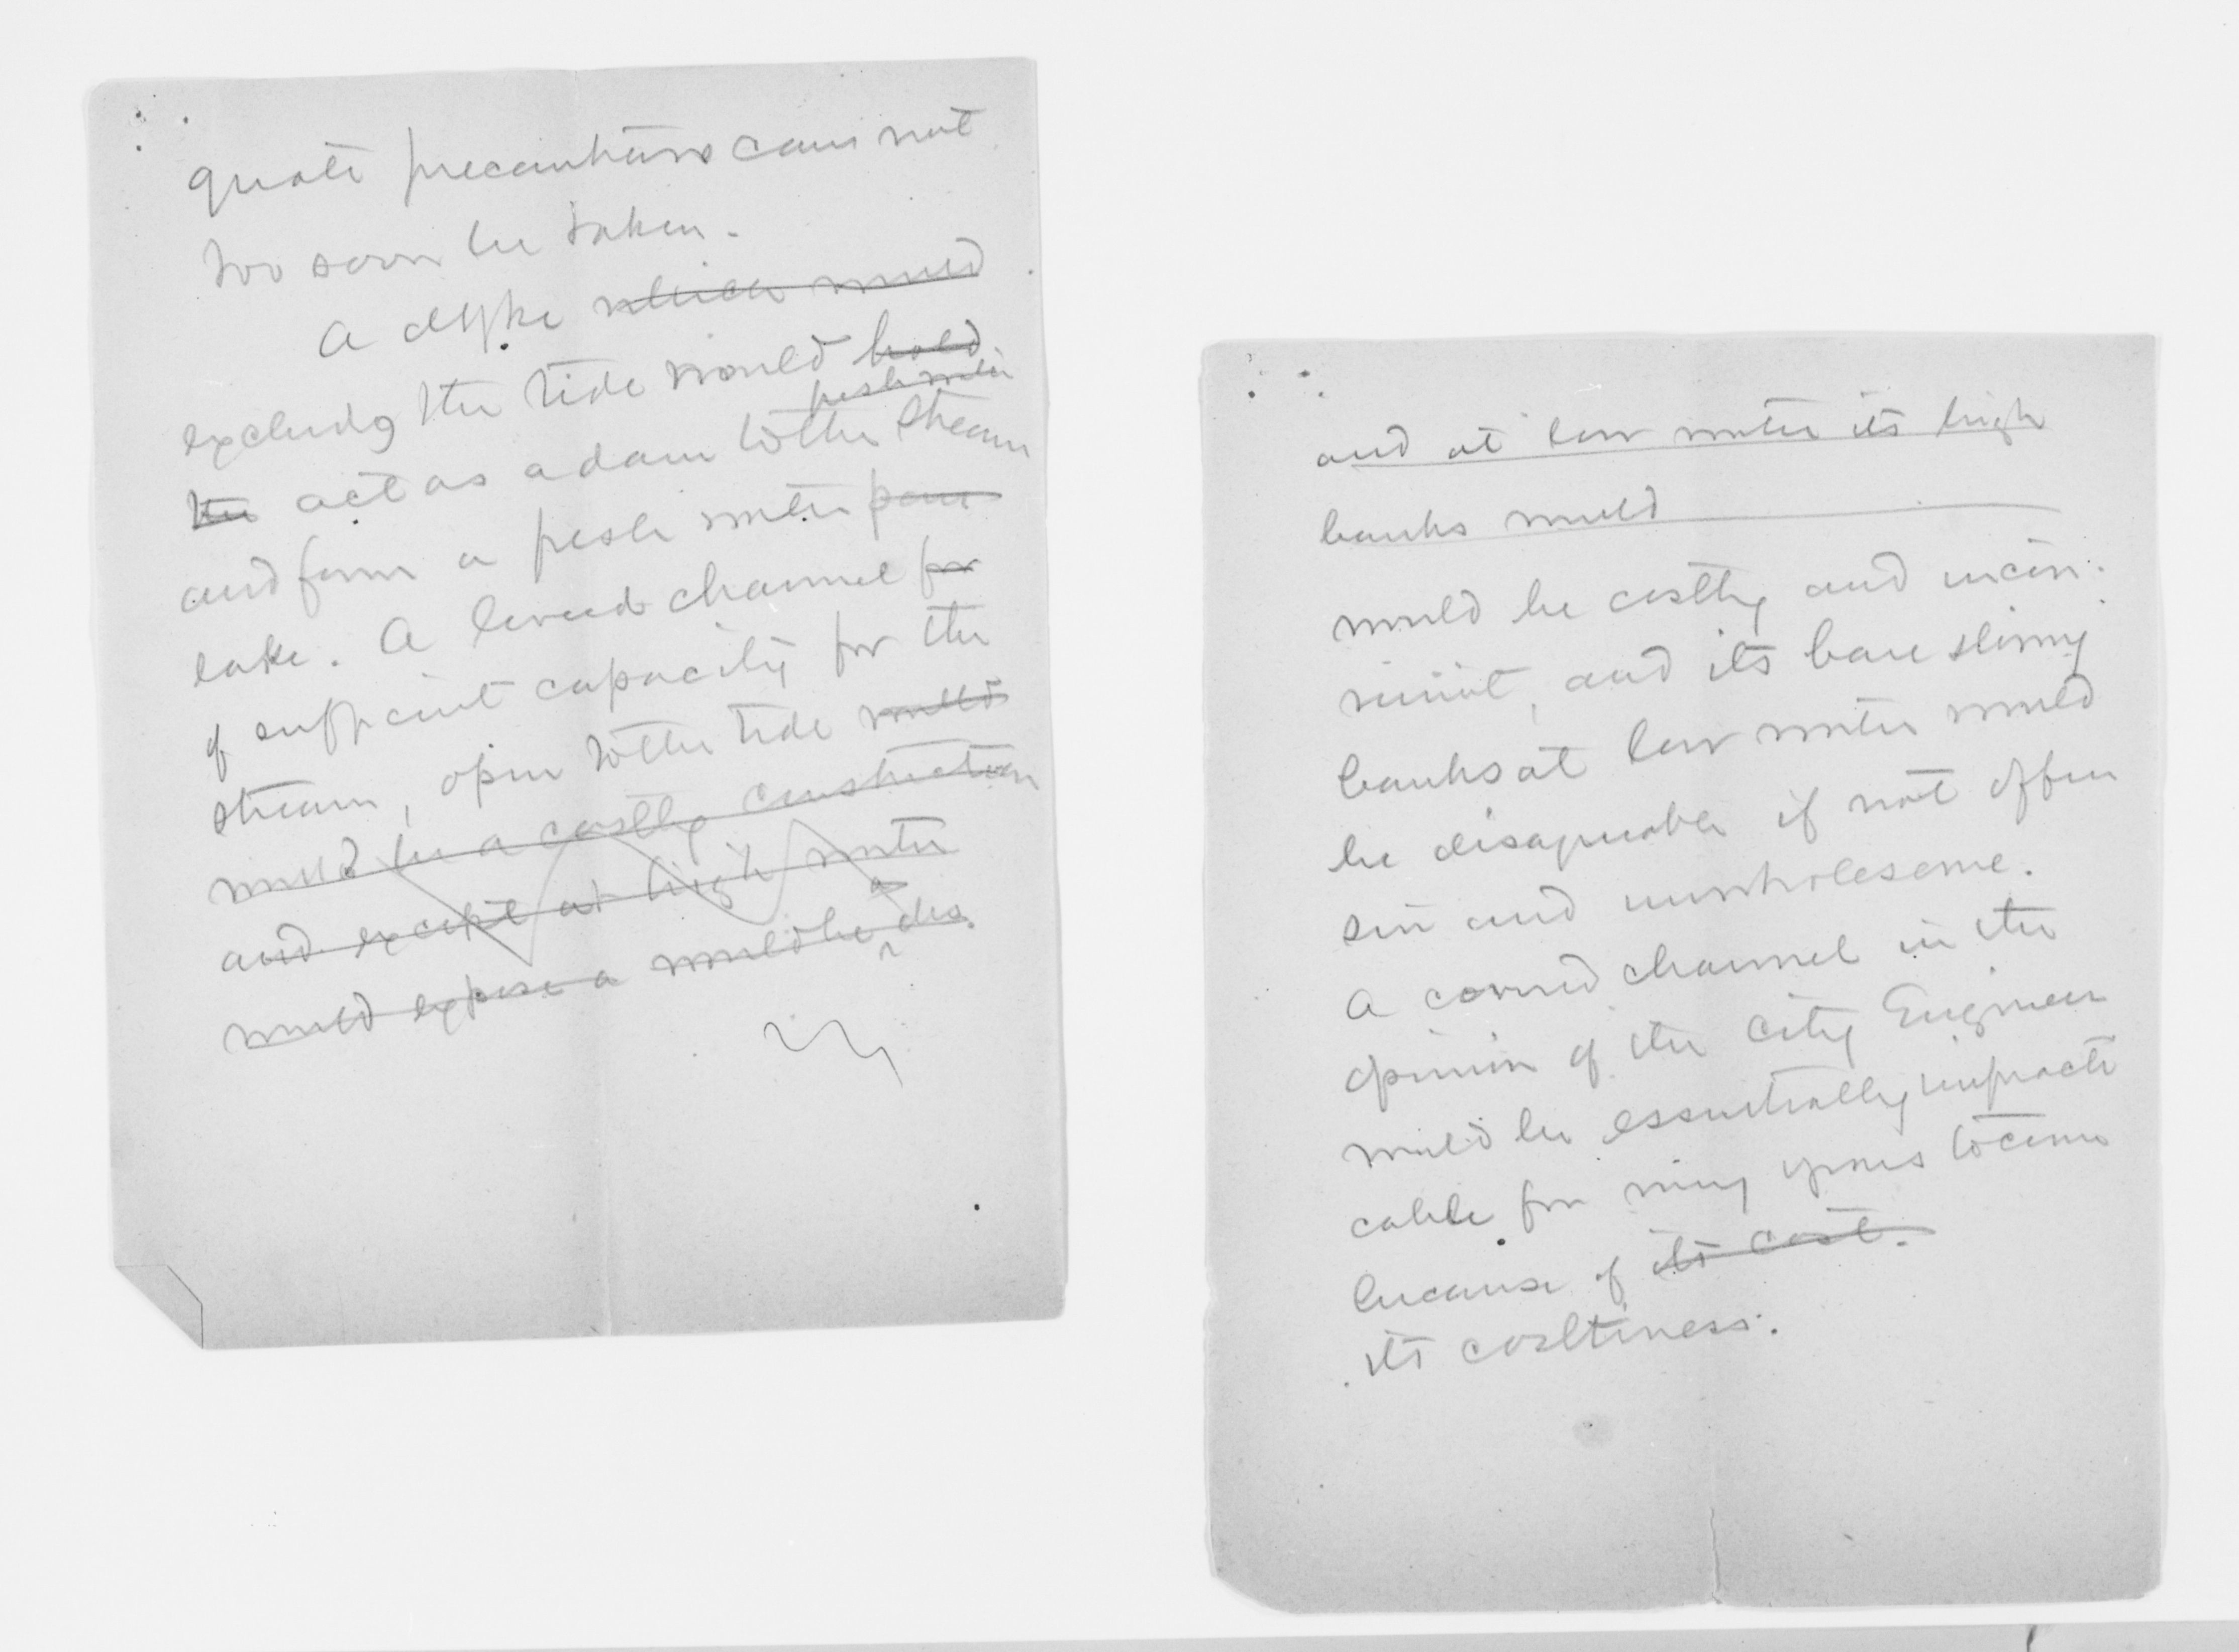 quate precautions can not
too soon be taken.
A dyke which would
excludg the tide would hold
fresh water
the act as a dam to the stream
and form a fresh water pond
lake. A leveed channel for
of sufficient capacity for the
stream, open to the tide would
would be a costly construction
and except at high water
would expose a would be a dis.
and at low water its high
banks would
would be costly and incon-
vinient, and its bare slimy
banks at low water would
be disagreeable if not offen
sive and unwholesome.
A covered channel in the
opinion of the City Engineer
would be essentially impracti
cable for many years to come
because of its cost.
its costliness.